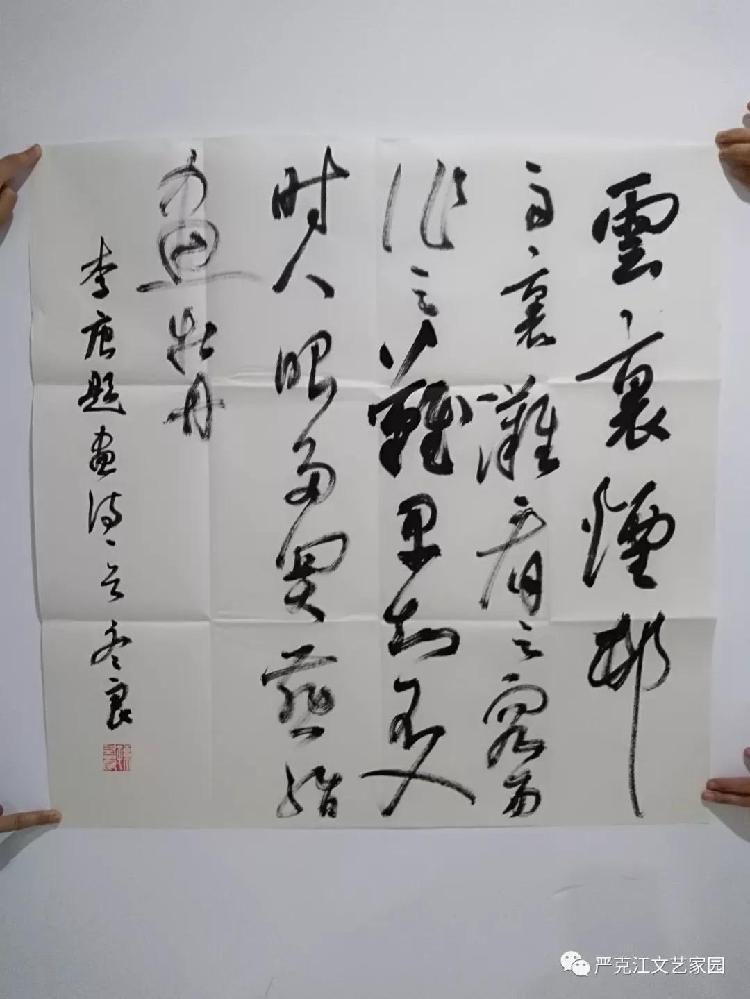 雲裏煙邨
雨裏灘看之容易
作之難早知不入
时人眼多買燕脂
畫牡丹
李唐題畫詩
严克江文艺家园